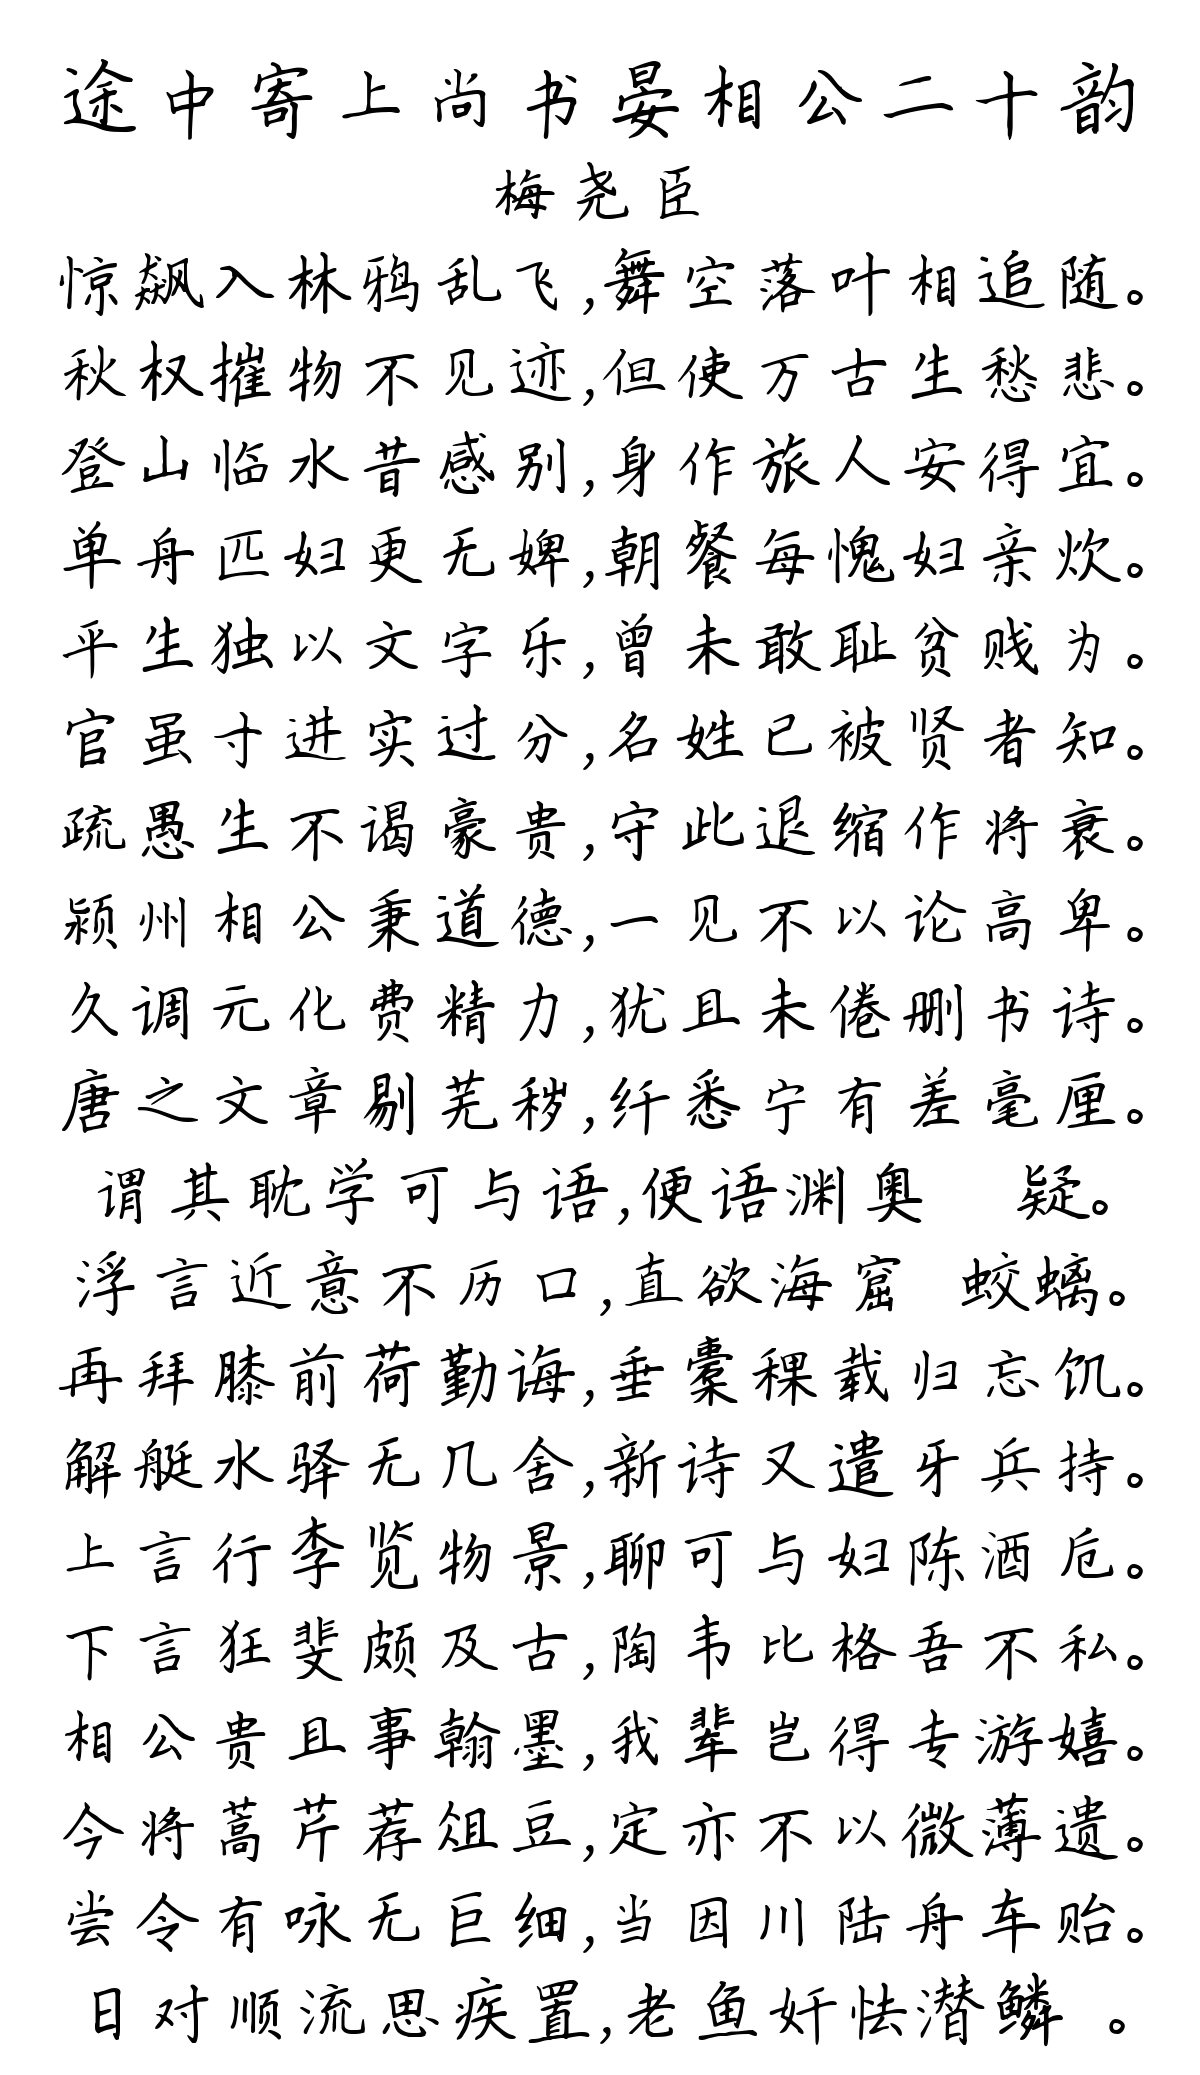 途中寄上尚书晏相公二十韵
梅尧臣
惊飙入林鸦乱飞,舞空落叶相追随。
秋权摧物不见迹,但使万古生愁悲。
登山临水昔感别,身作旅人安得宜。
单舟匹妇更无婢,朝餐每愧妇亲炊。
平生独以文字乐,曾未敢耻贫贱为。
官虽寸进实过分,名姓已被贤者知。
疏愚生不谒豪贵,守此退缩作将衰。
颍州相公秉道德,一见不以论高卑。
久调元化费精力,犹且未倦删书诗。
唐之文章剔芜秽,纤悉宁有差毫厘。
谓其耽学可与语,便语渊奥 疑。
浮言近意不历口,直欲海窟 蛟螭。
再拜膝前荷勤诲,垂橐稞载归忘饥。
解艇水驿无几舍,新诗又遣牙兵持。
上言行李览物景,聊可与妇陈酒卮。
下言狂斐颇及古,陶韦比格吾不私。
相公贵且事翰墨,我辈岂得专游嬉。
今将蒿芹荐俎豆,定亦不以微薄遗。
尝令有咏无巨细,当因川陆舟车贻。
日对顺流思疾置,老鱼奸怯潜鳞 。